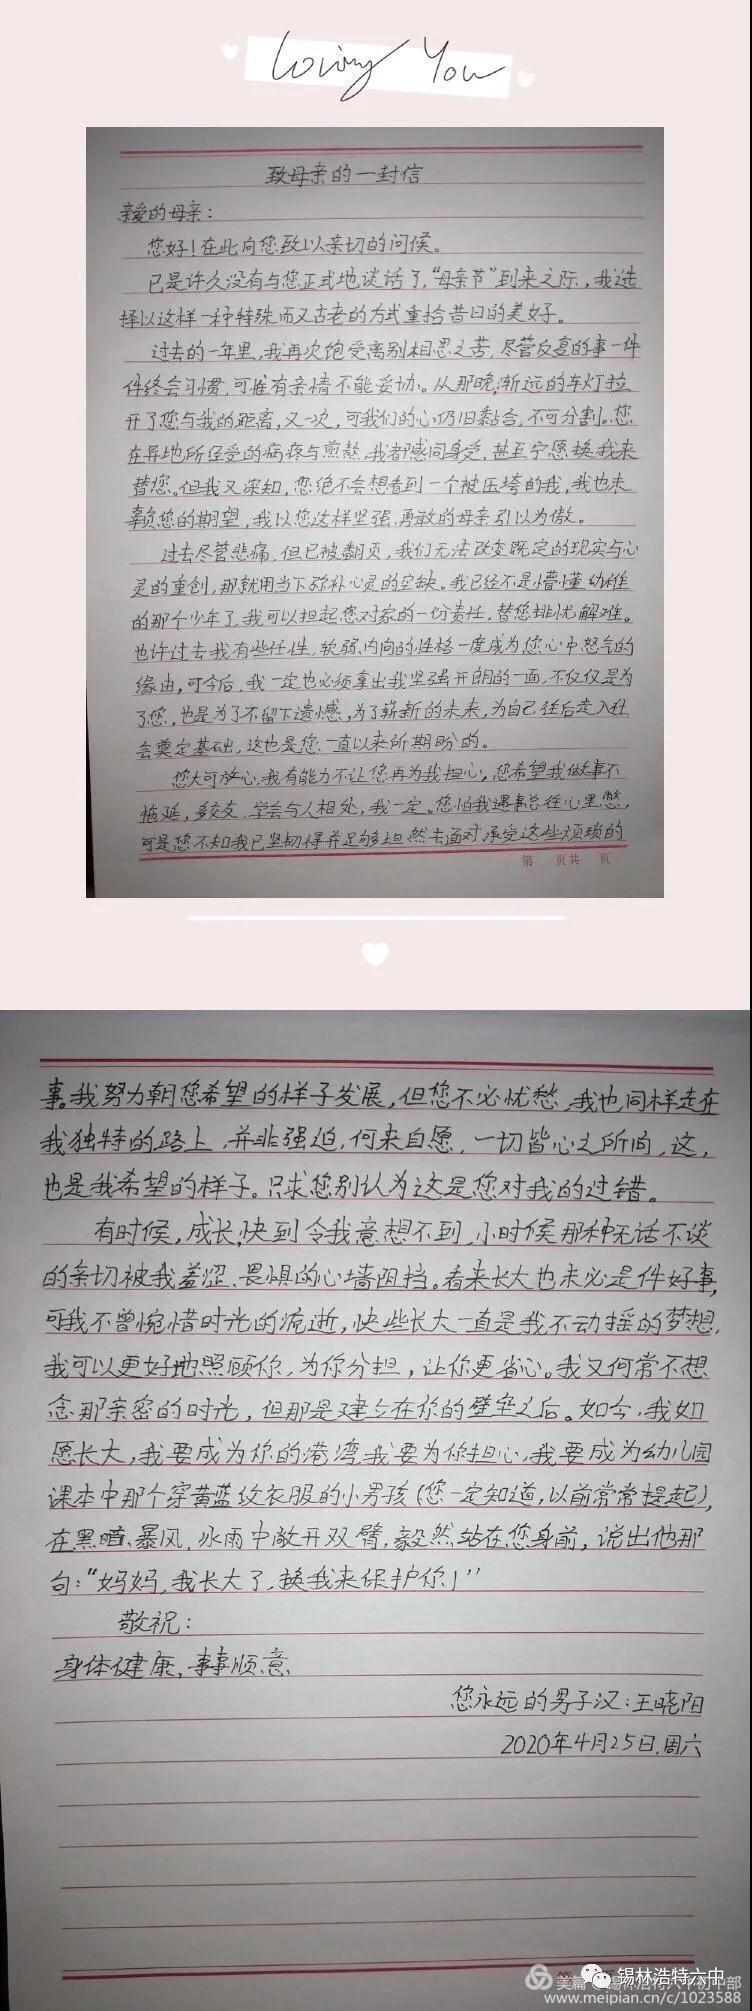 Loving You
致母亲的一封信
亲爱的母亲：
您好！在此向您致以亲切的问候。
已是许久没有与您正式地谈话了，“母亲节”到来之际，我选
择以这样一种特殊而又古老的方式重拾昔日的美好。
过去的一年里，我再次饱受离别相思之苦，尽管反复的事一件
件终会习惯，可唯有亲情不能妥协。从那晚，渐远的车灯拉
开了您与我的距离，又一次，可我们的心仍旧黏合，不可分割。您
在异地所经受的病疼与煎熬，我都感同身受，甚至宁愿换我来
替您。但我又深知，您绝不会想看到一个被压垮的我，我也未
辜负您的期望，我以您这样坚强、勇敢的母亲引以为傲。
过去尽管悲痛，但已被翻页，我们无法改变既定的现实与心
灵的重创，那就用当下弥补心灵的空缺。我已经不是懵懂幼稚
的那个少年了，我可以担起您对家的一份责任，替您排忧解难。
也许过去我有些任性，软弱、内向的性格一度成为您心中怒气的
缘由，可今后，我一定也必须拿出我坚强开朗的一面，不仅仅是为
了您，也是为了不留下遗憾，为了崭新的未来，为自己往后走入社
会奠定基础，这也是您一直以来所期盼的。
您大可放心，我有能力不让您再为我担心，您希望我做事不
拖延，多交友，学会与人相处，我一定。您怕我遇事总往心里憋，
可是您不知我已坚韧得并足够坦然去面对、承受这些烦琐的
第 页共 页
事。我努力朝您希望的样子发展，但您不必忧愁，我也同样走在
我独特的路上，并非强迫，何来自愿，一切皆心之所向，这，
也是我希望的样子。只求您别认为这是您对我的过错。
有时候，成长，快到令我意想不到，小时候那种无话不谈
的亲切被我羞涩、畏惧的心墙阻挡。看来长大也未必是件好事，
可我不曾惋惜时光的流逝，快些长大一直是我不动摇的梦想，
我可以更好地照顾你，为你分担，让你更省心。我又何常不想
念那亲密的时光，但那是建立在你的壁垒之后。如今，我如
愿长大，我要成为你的港湾，我要为你担心，我要成为幼儿园
课本中那个穿黄蓝纹衣服的小男孩（您一定知道，以前常常提起），
在黑暗、暴风、冰雨中敞开双臂，毅然站在您身前，说出他那
句：“妈妈，我长大了，换我来保护你！”
敬祝：
身体健康，事事顺意
您永远的男子汉：王晓阳
2020年4月25日，周六
锡林浩特六中
美篇
www.meipian.cn/c/1023588